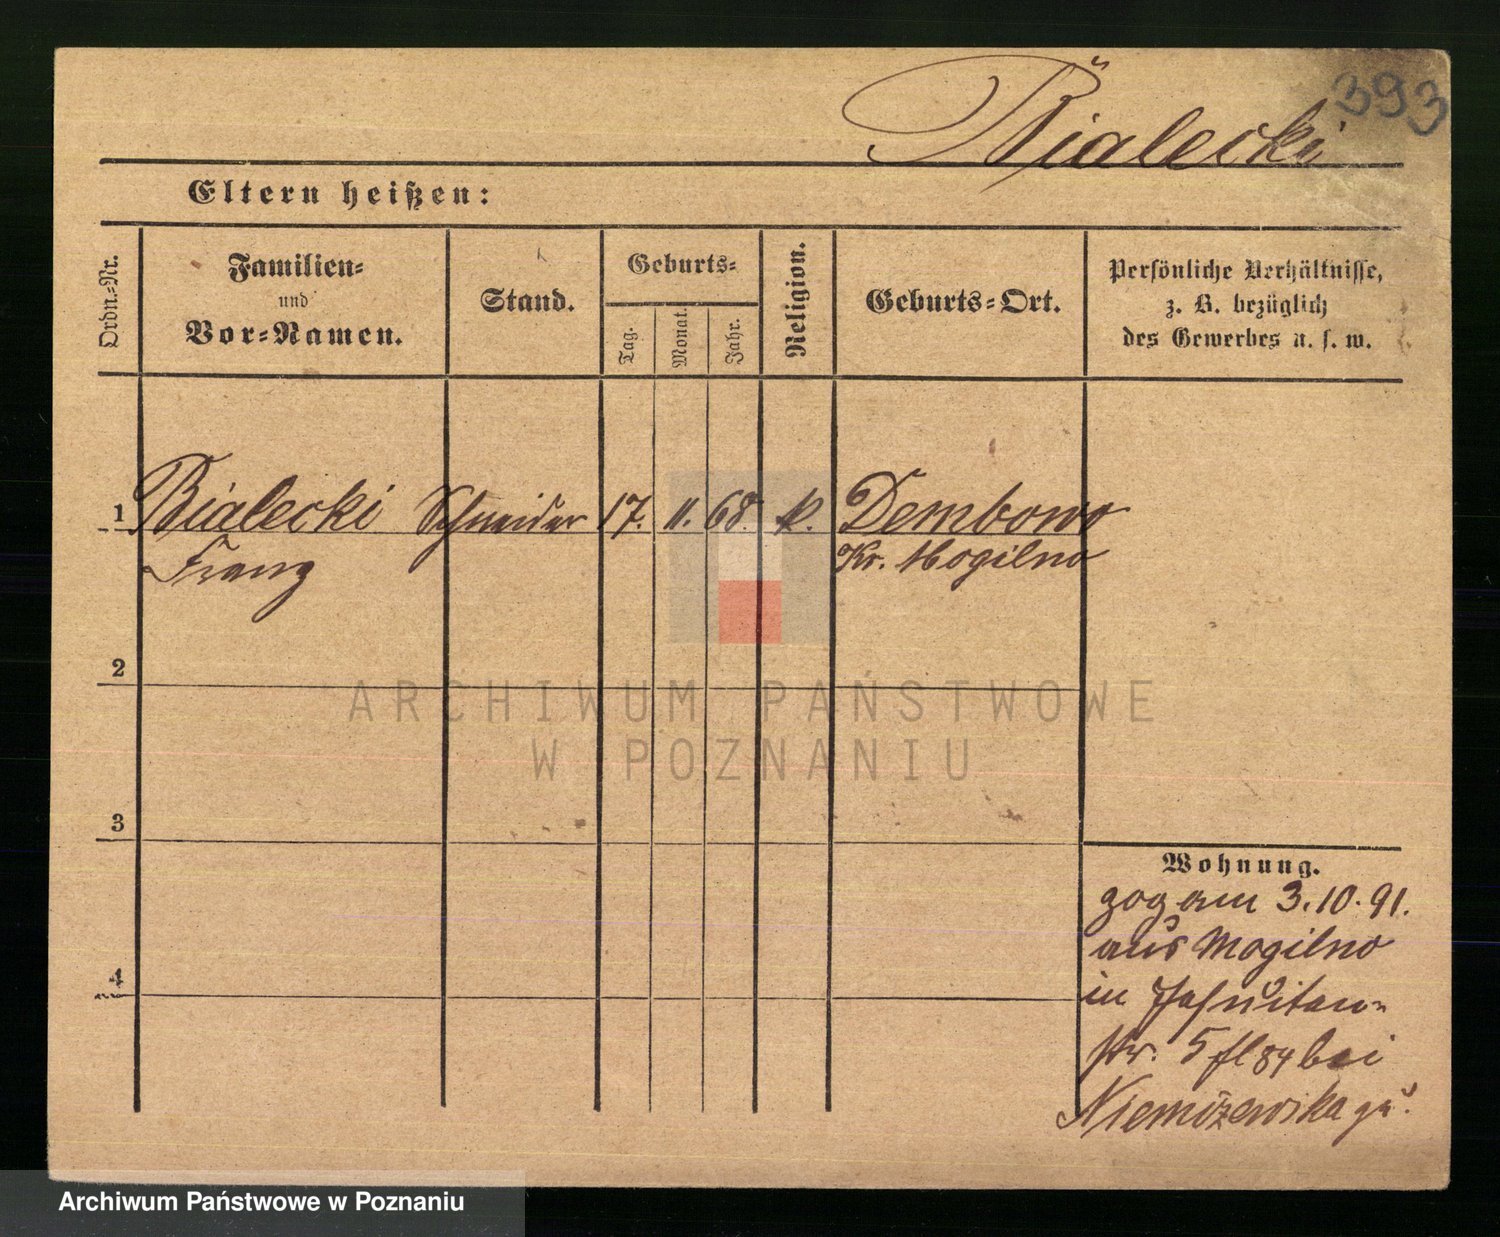 393
Bialecki
Eltern heißen:
Ordn.-Nr.
Familien-
und
Vor-Namen.
Stand.
Geburts-
Tag.
Monat.
Jahr.
Religion.
Geburts-Ort.
Persönliche Verhältnisse,
z. B. bezüglich
des Gewerbes u. s. w.
1 Bialecki Schneider 17. 11. 68. k. Dembowo
Franz Kr. Mogilno
2
3
4
Wohnung.
zog am 3.10.91.
aus Mogilno
in Jesuiten-
str. 5 fl 84 bei
zu.
ARCHIWUM PAŃSTWOWE
W POZNANIU
Archiwum Państwowe w Poznaniu